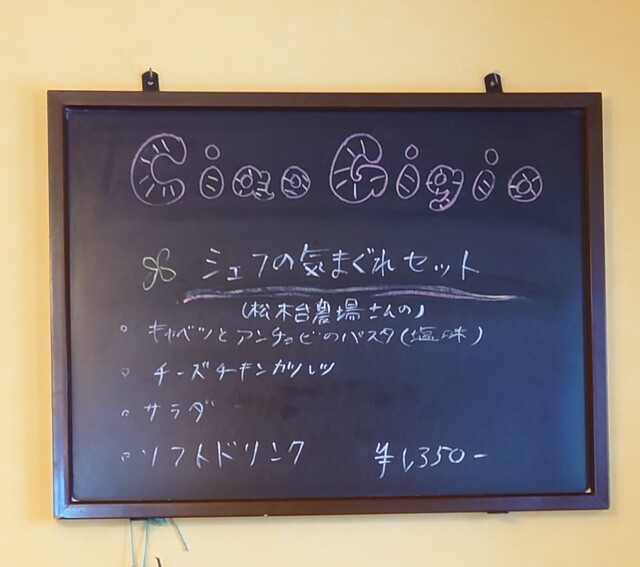 Ciao Gigio
シェフの気まぐれセット
(松木台農場さんの)
○ キャベツとアンチョビのパスタ(塩味)
○ チーズチキンカツレツ
○ サラダ
○ ソフトドリンク ¥1,350-